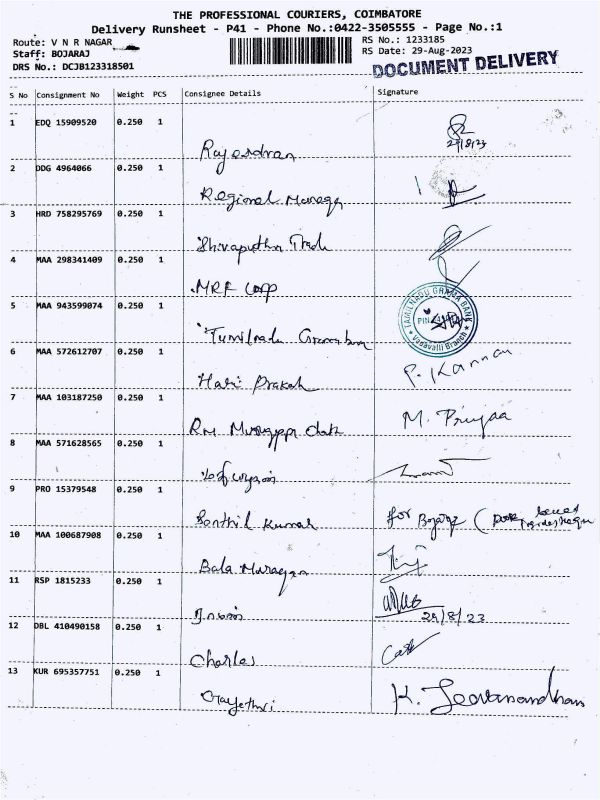 THE PROFESSIONAL COURIERS, COIMBATORE
Delivery Runsheet - P41 - Phone No.:0422-3505555 - Page No.:1
Route: V N R NAGAR
Staff: BOJARAJ
DRS No.: DCJB123318501
RS No.: 1233185
RS Date: 29-Aug-2023
DOCUMENT DELIVERY
S No Consignment No Weight PCS Consignee Details Signature
1 EDQ 15909520 0.250 1
Rajendran
2 DDG 4964066 0.250 1
Regional Manager
3 HRD 758295769 0.250 1
4 MAA 298341409 0.250 1
MRF Corp
5 MAA 943599074 0.250 1
TAMILNADU GRAMA BANK
Vadavalli Branch
Tamilnadu
6 MAA 572612707 0.250 1
P. Kannan
Hari Prakash
7 MAA 103187250 0.250 1
M. Priyaa
RM Murugappa
8 MAA 571628565 0.250 1
9 PRO 15379548 0.250 1
Senthil Kumar
for
10 MAA 100687908 0.250 1
Bala Murugan
11 RSP 1815233 0.250 1
29/8/23
12 DBL 410490158 0.250 1
Charles
13 KUR 695357751 0.250 1
Gayethri
K. Jeevanandhan